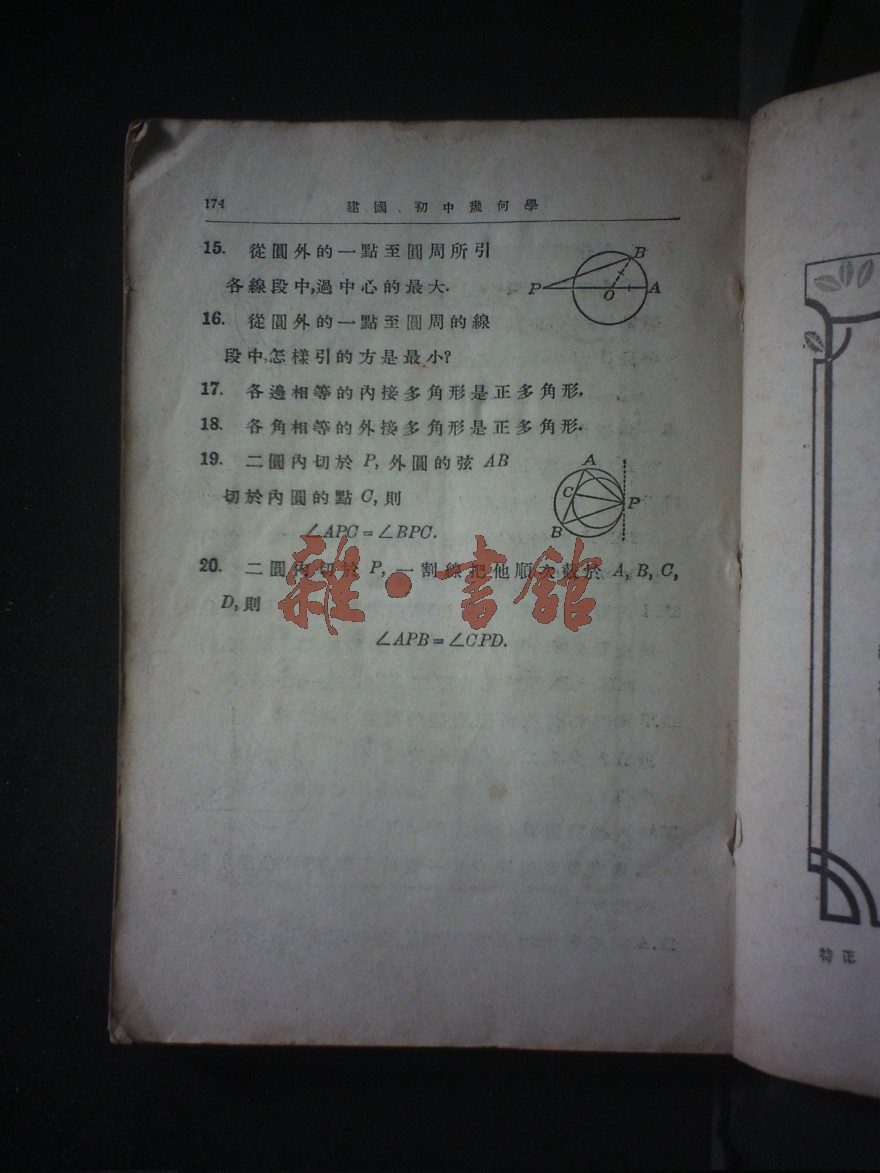 174
建國 初中幾何學
15. 從圓外的一點至圓周所引
各線段中,過中心的最大.
P O A B
16. 從圓外的一點至圓周的線
段中,怎樣引的方是最小?
17. 各邊相等的內接多角形是正多角形.
18. 各角相等的外接多角形是正多角形.
19. 二圓內切於 P, 外圓的弦 AB
切於內圓的點 C, 則
A C P B
∠APC=∠BPC.
20. 二圓內切於 P, 一割線把他順次截於 A, B, C,
D, 則
∠APB=∠CPD.
雜·書館
特正